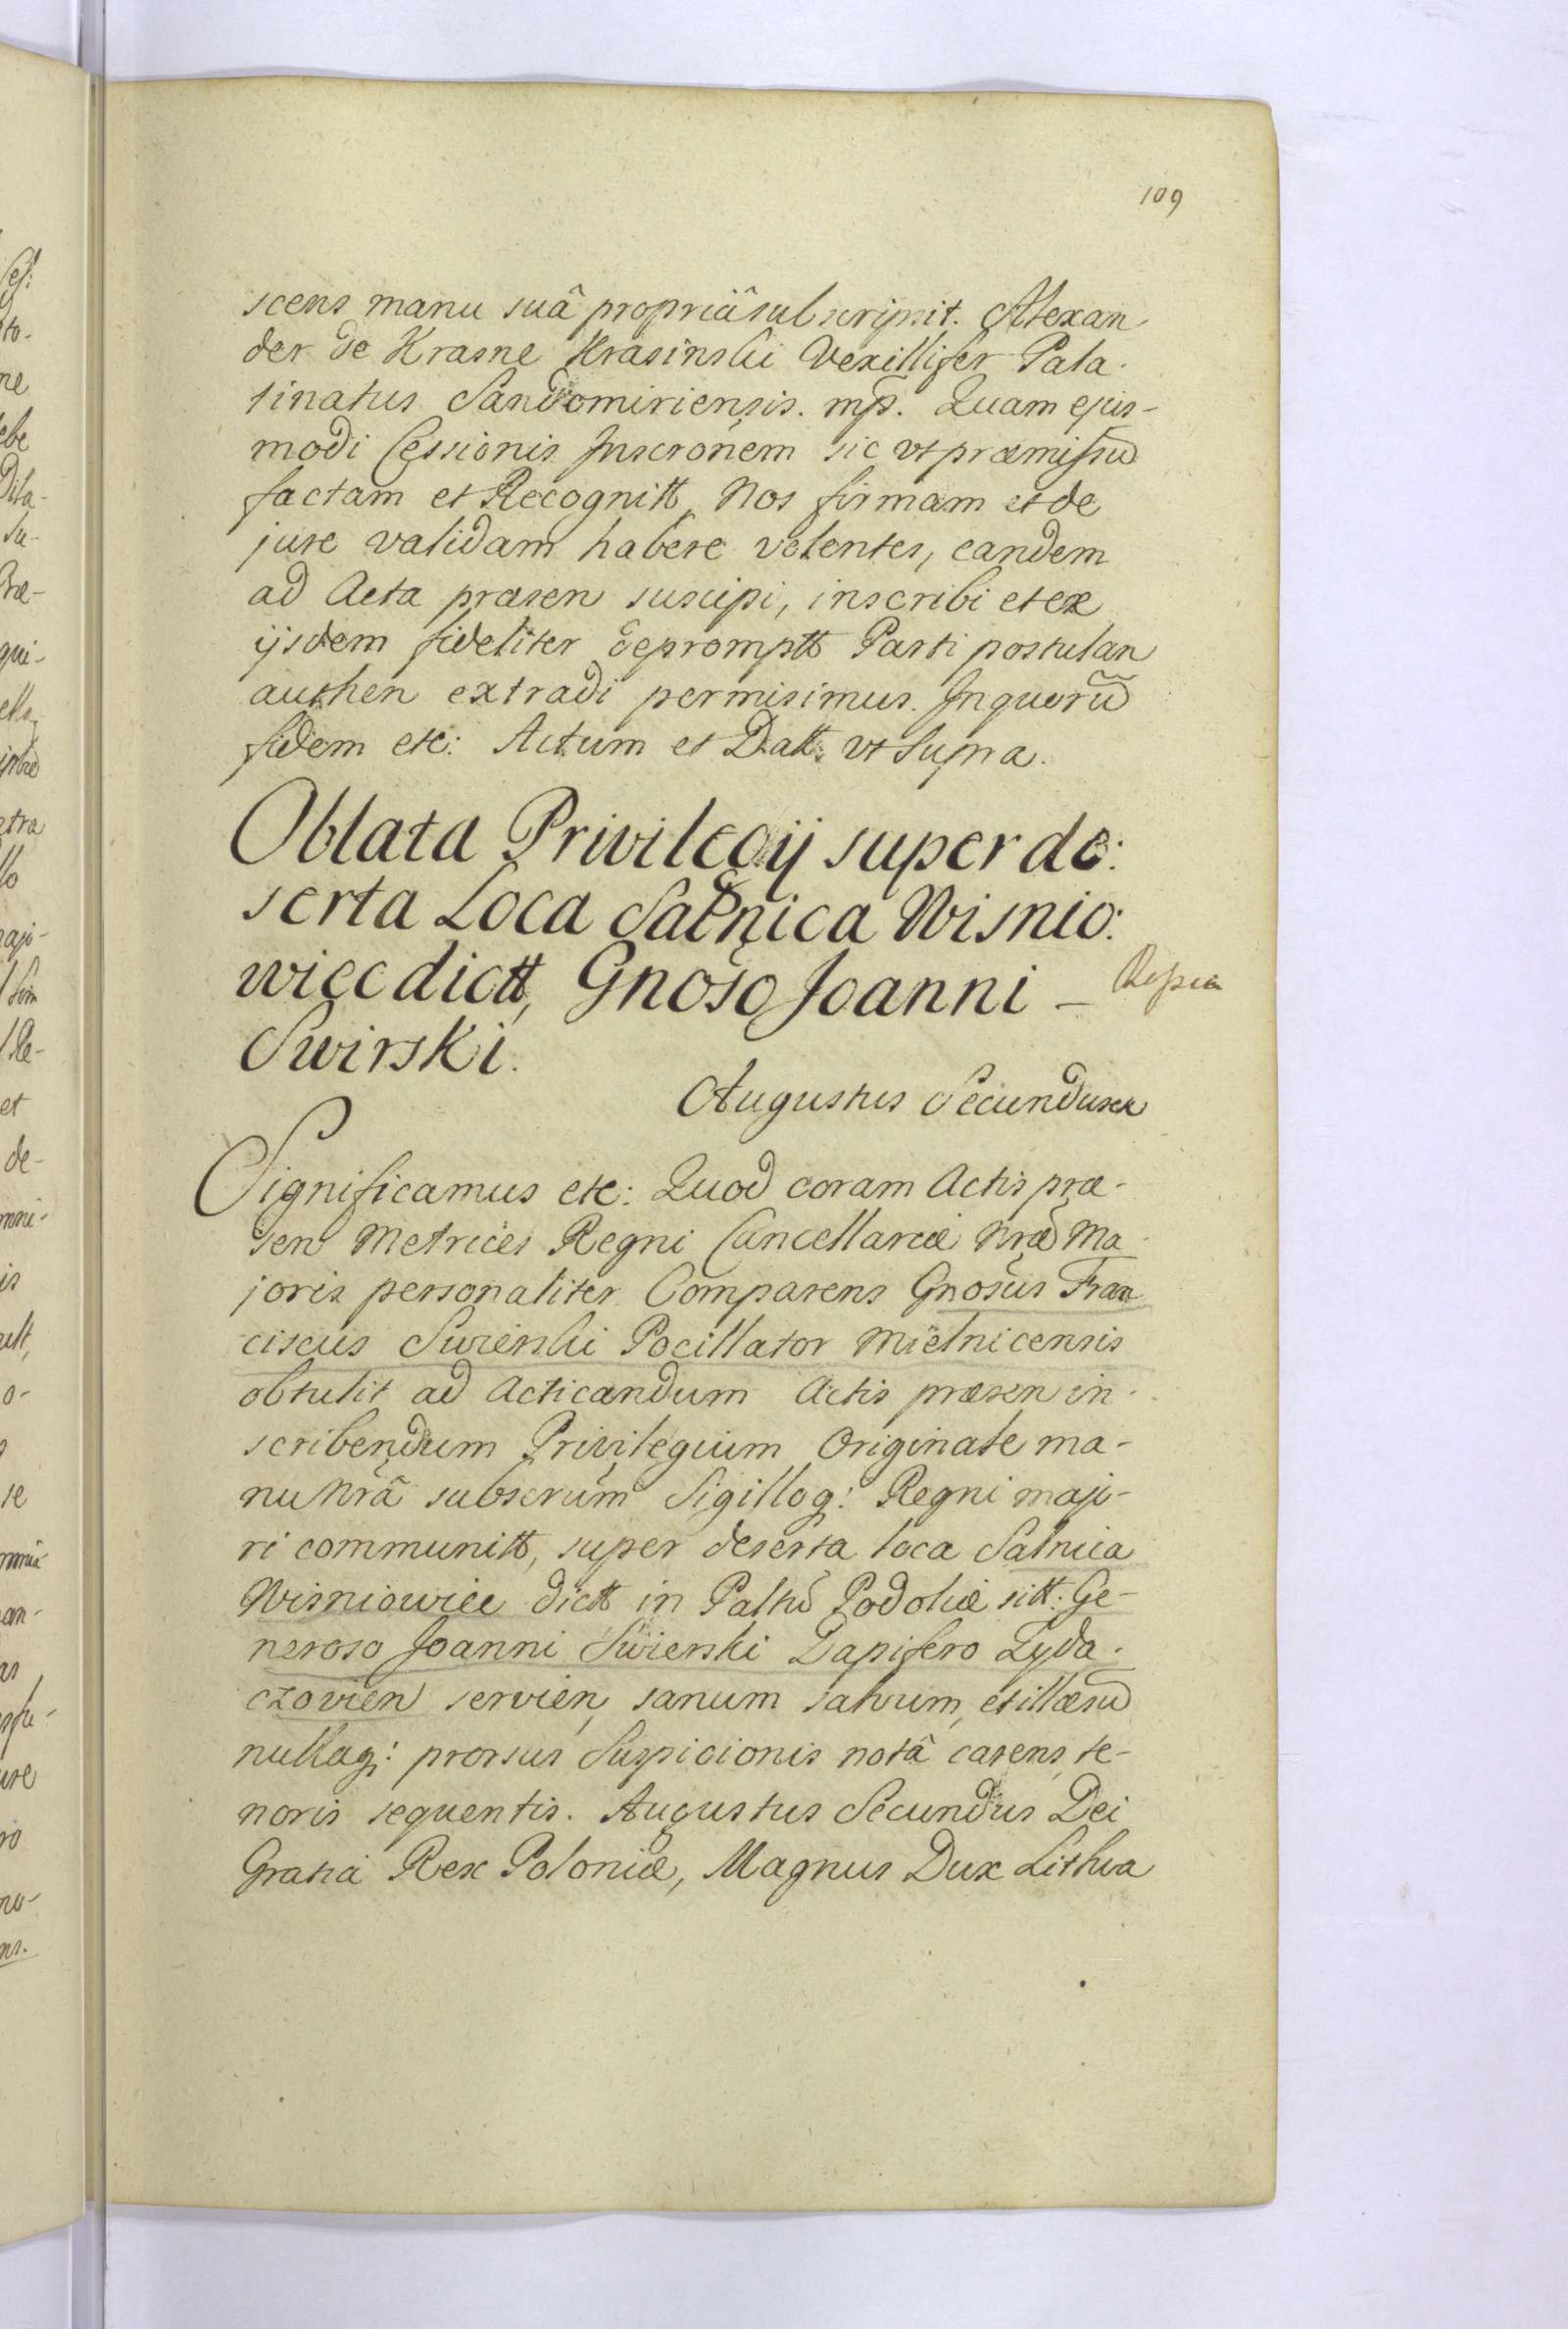 109
scens manu suâ propriâ subscripsit. Alexan
der de Krasne Krasinski Vexillifer Pala-
tinatus Sandomiriensis. mp. Quam ejus-
modi Cessionis Inscronem sic vt præmissũ
factam et Recognitt, Nos firmam et de
jure validam habere volentes, eandem
ad Acta præsen suscipi, inscribi et ex
ijsdem fideliter depromptt Parti postulan
authen extradi permisimus. In quorũ
fidem etc: Actum et Datt: vt supra.
Oblata Privilegij super de:
serta Loca Satnica Wisnio:
wiec dictt, Gnoso Joanni –
Swirski.
Augustus Secundus
Significamus etc: Quod coram Actis præ-
sen Metrices Regni Cancellariæ nræ Ma
joris personaliter Comparens Gnosus Fran
ciscus Swierski Pocillator Mielnicensis
obtulit ad Acticandum Actis præsen in-
scribendum Privilegium Originale ma-
nu Nrâ subscrum Sigilloq: Regni majo-
ri communitt, super deserta loca Satnica
Wisniowiec dictt in Palttu Podoliæ sitt: Ge-
neroso Joanni Swierski Dapifero Zyda-
czovien servien, sanum salvum, et illæsũ
nullaq: prorsus Suspicionis notâ carens, te-
noris sequentis. Augustus Secundus Dei
Gratia Rex Poloniæ, Magnus Dux Lithva